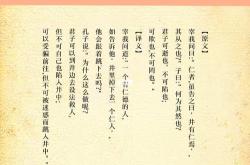 【原文】
宰我问曰：“仁者，虽告之曰，‘井有仁焉。’
其从之也？”子曰：“何为其然也？
君子可逝也，不可陷也；
可欺也，不可罔也。”
【译文】
宰我问道：“一个有仁德的人，
如告诉他，井里掉下去一个仁人，
他会跟着跳下去吗？”
孔子说：“为什么这么做呢？
君子可以到井边去设法救人，
但不可自己也陷入井中。
可以受骗前往但不可被迷惑而跳入井中。”